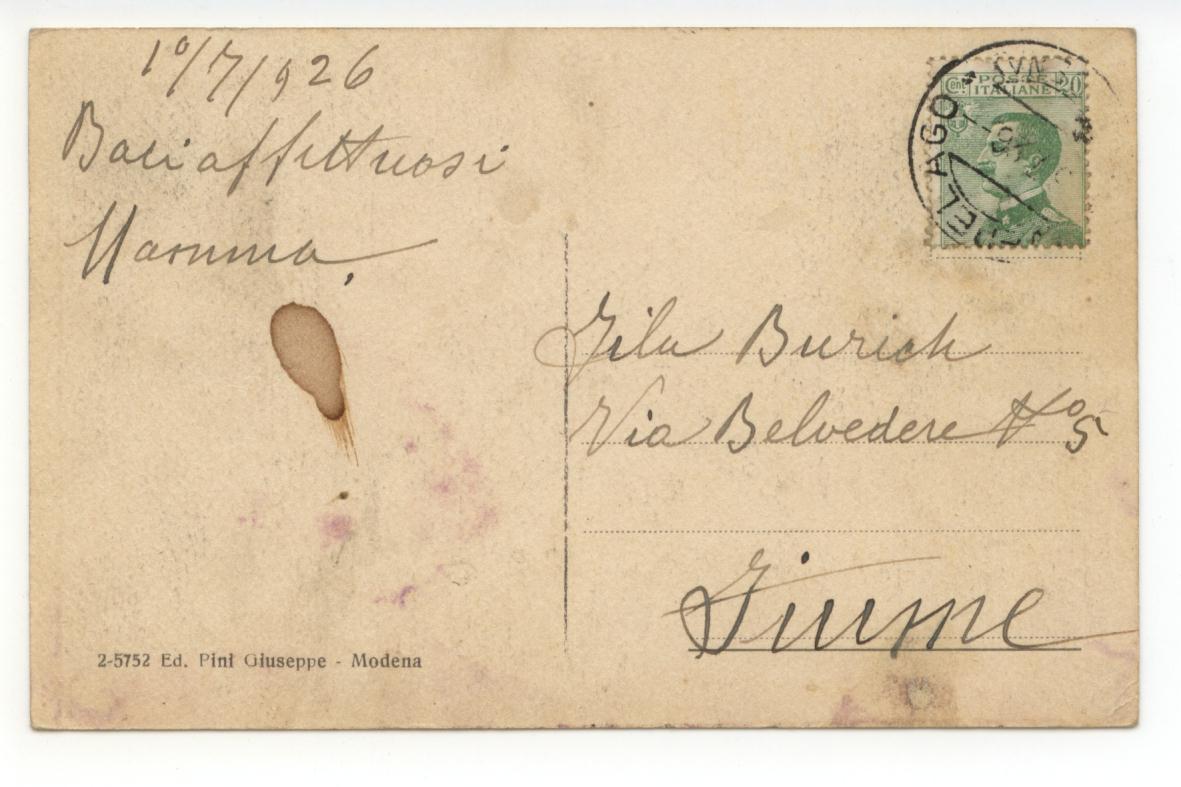 10/7/1926
Baci affettuosi
Mamma
Cent.
POSTE
ITALIANE
20
AGO
Burich
Via Belvedere No 5
Fiume
2-5752 Ed. Pini Giuseppe - Modena